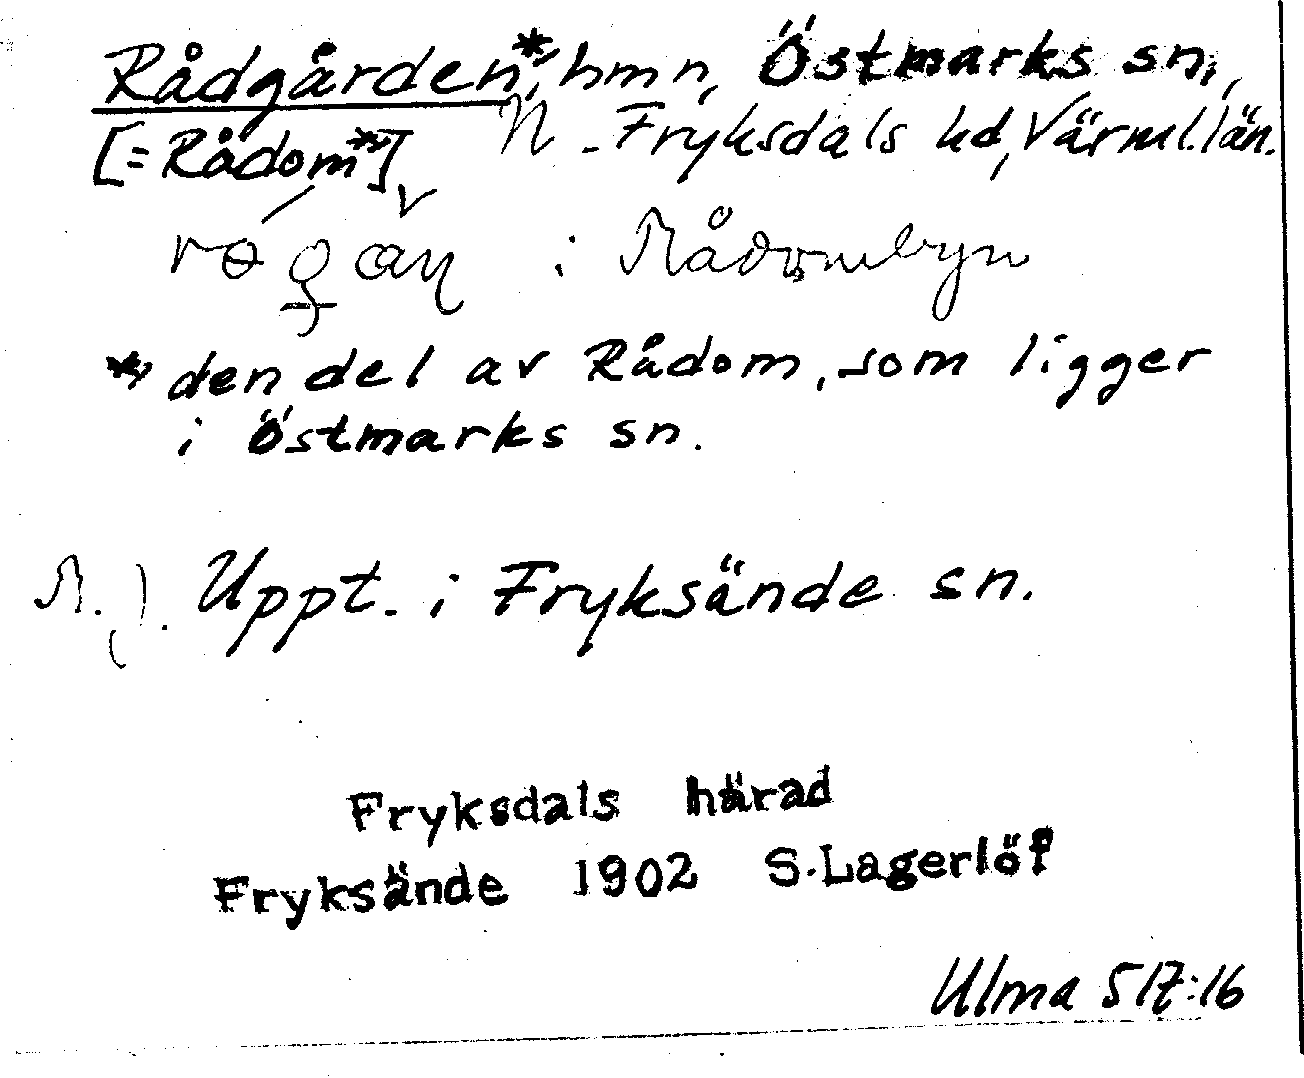 Rådgården*, hmn, Östmarks sn.,
[= Rådom*] N - Fryksdals hd, Värml. län.
i Rådombyn
* den del av Rådom, som ligger
i Östmarks sn.
Uppt. i Fryksände sn.
Fryksdals härad
Fryksände 1902 S.Lagerlöf
Ulma 517:16